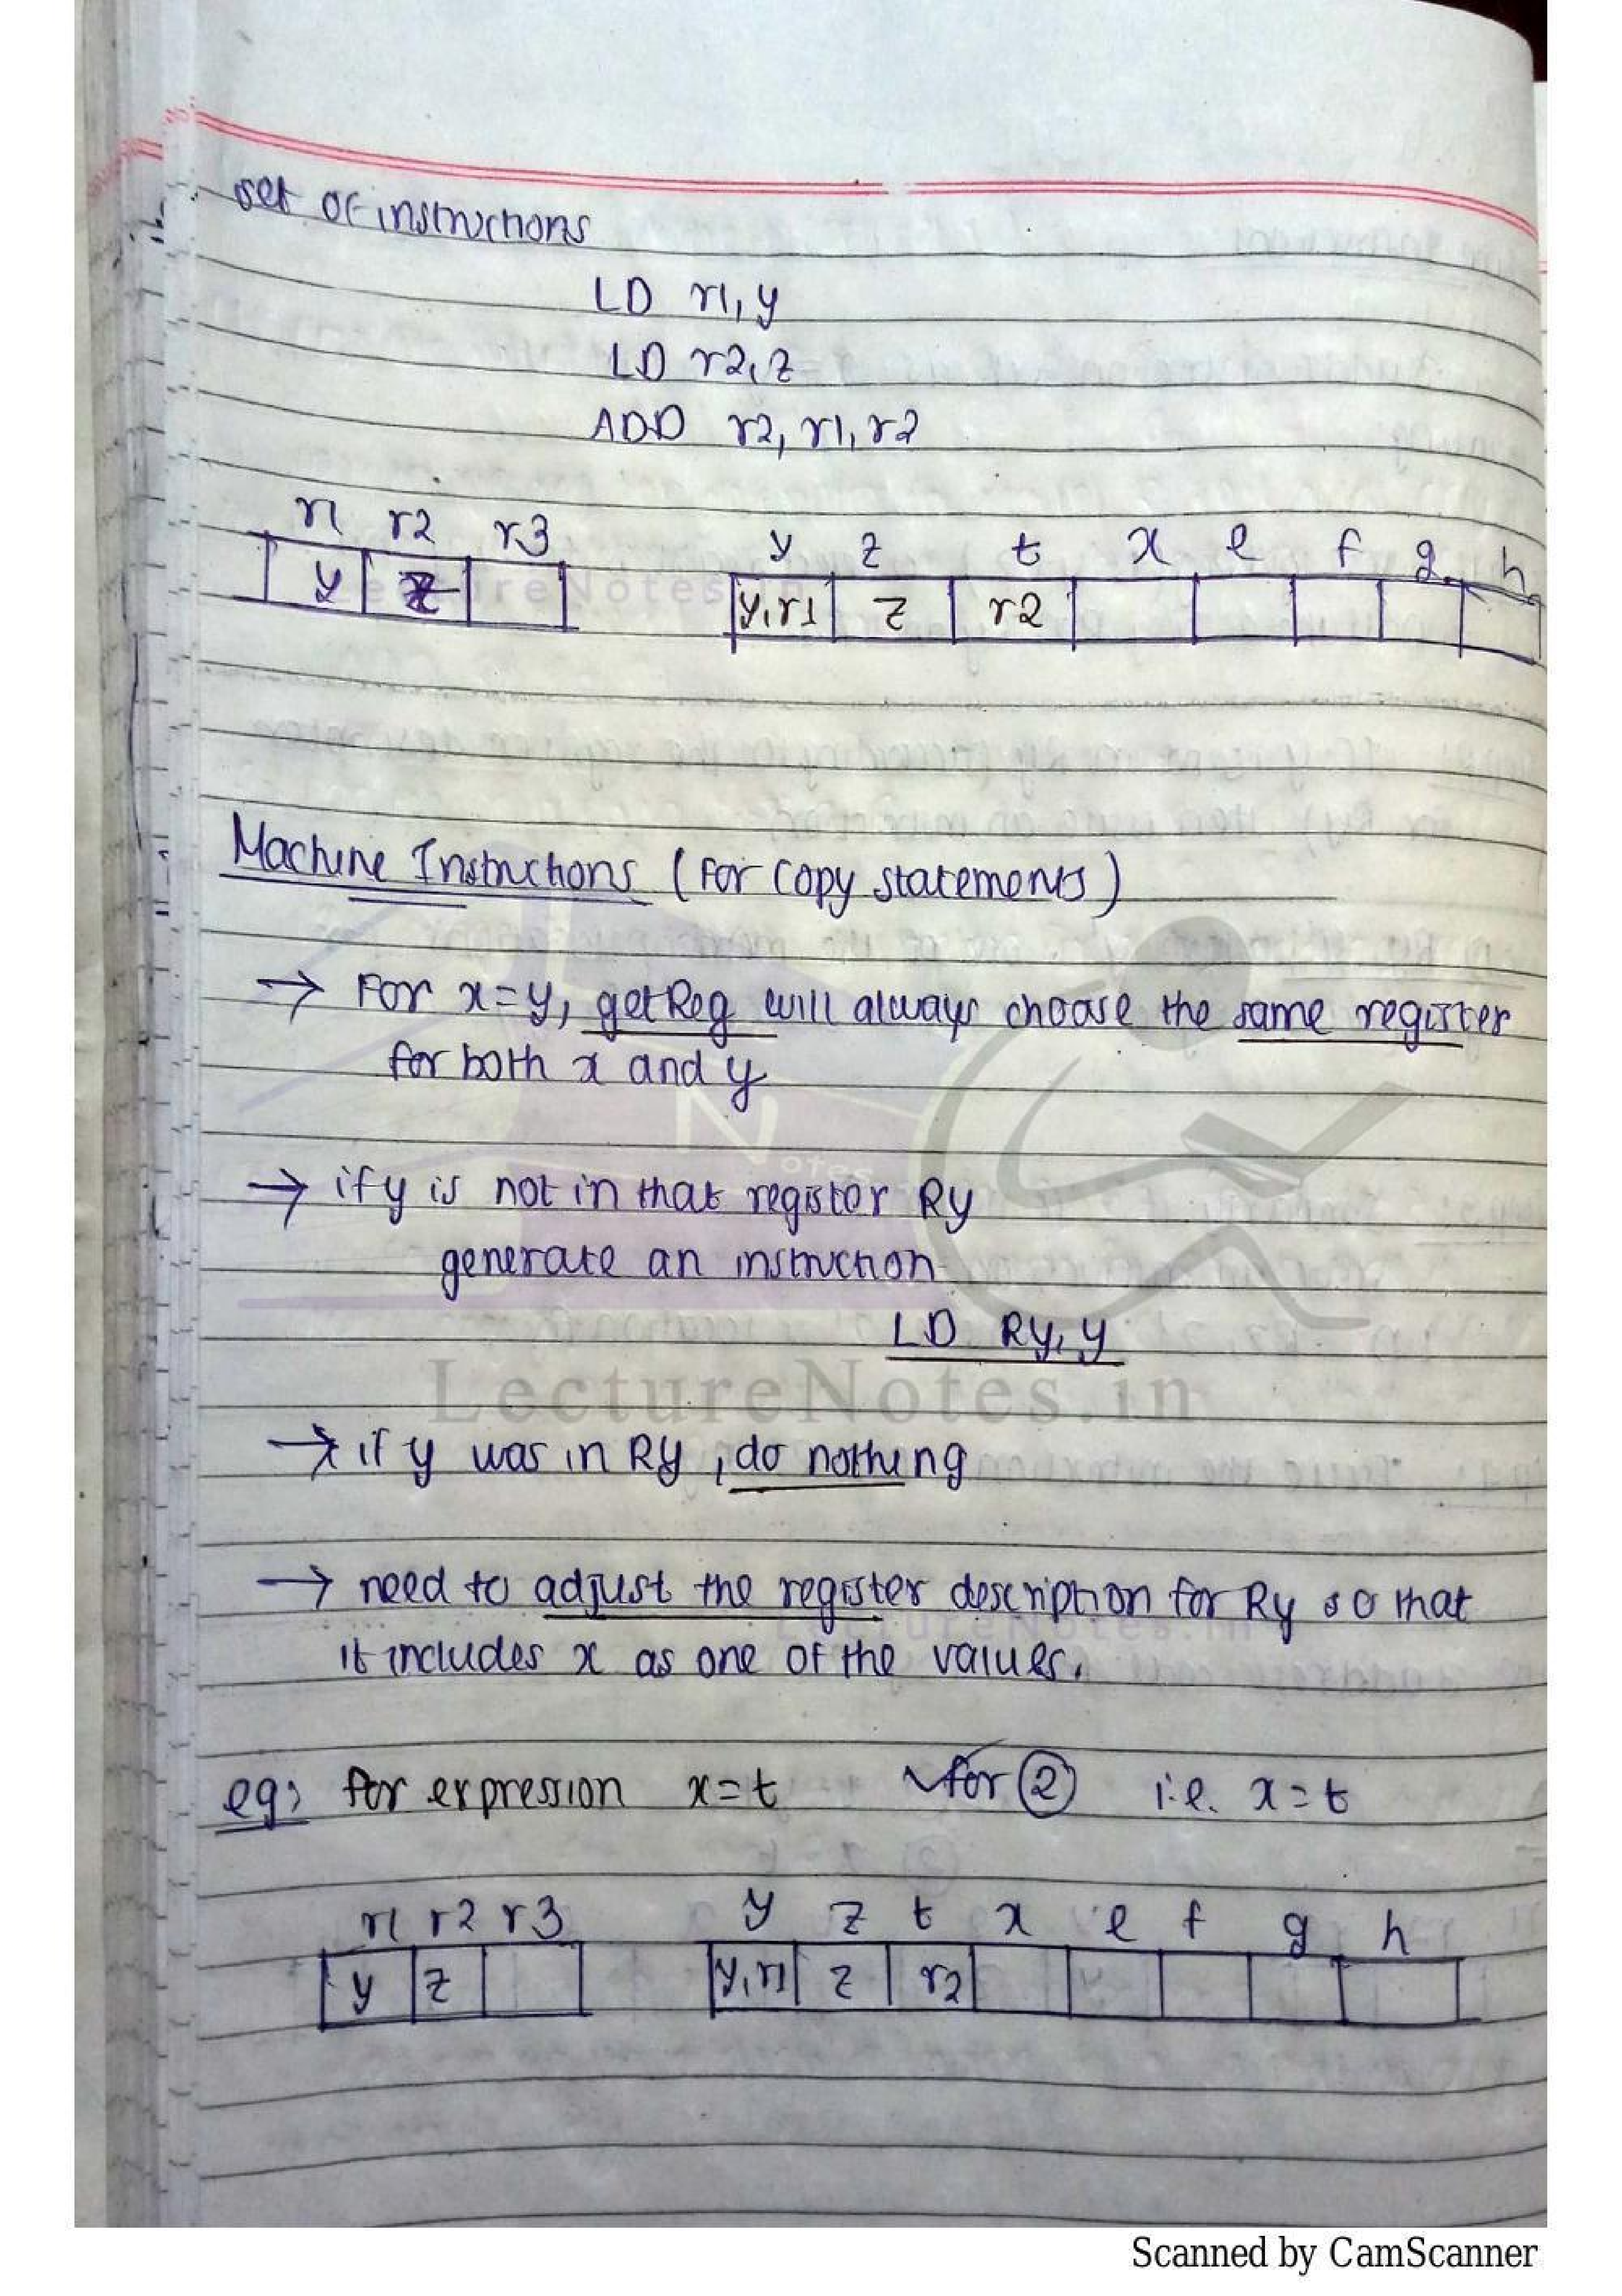 set of instructions
LD r1, y
LD r2, z
ADD r2, r1, r2
r1 r2 r3 y z t x e f g h
y z y,r1 z r2
LectureNotes.in
Machine Instructions (for copy statements)
→ For x=y, getReg will always choose the same register
for both x and y
→ if y is not in that register Ry
generate an instruction
LD Ry, y
LectureNotes.in
→ if y was in Ry, do nothing
→ need to adjust the register description for Ry so that
LectureNotes.in
it includes x as one of the values.
eg: for expression x=t for ② i.e. x=t
r1 r2 r3 y z t x e f g h
y z y,r1 z r2
Scanned by CamScanner